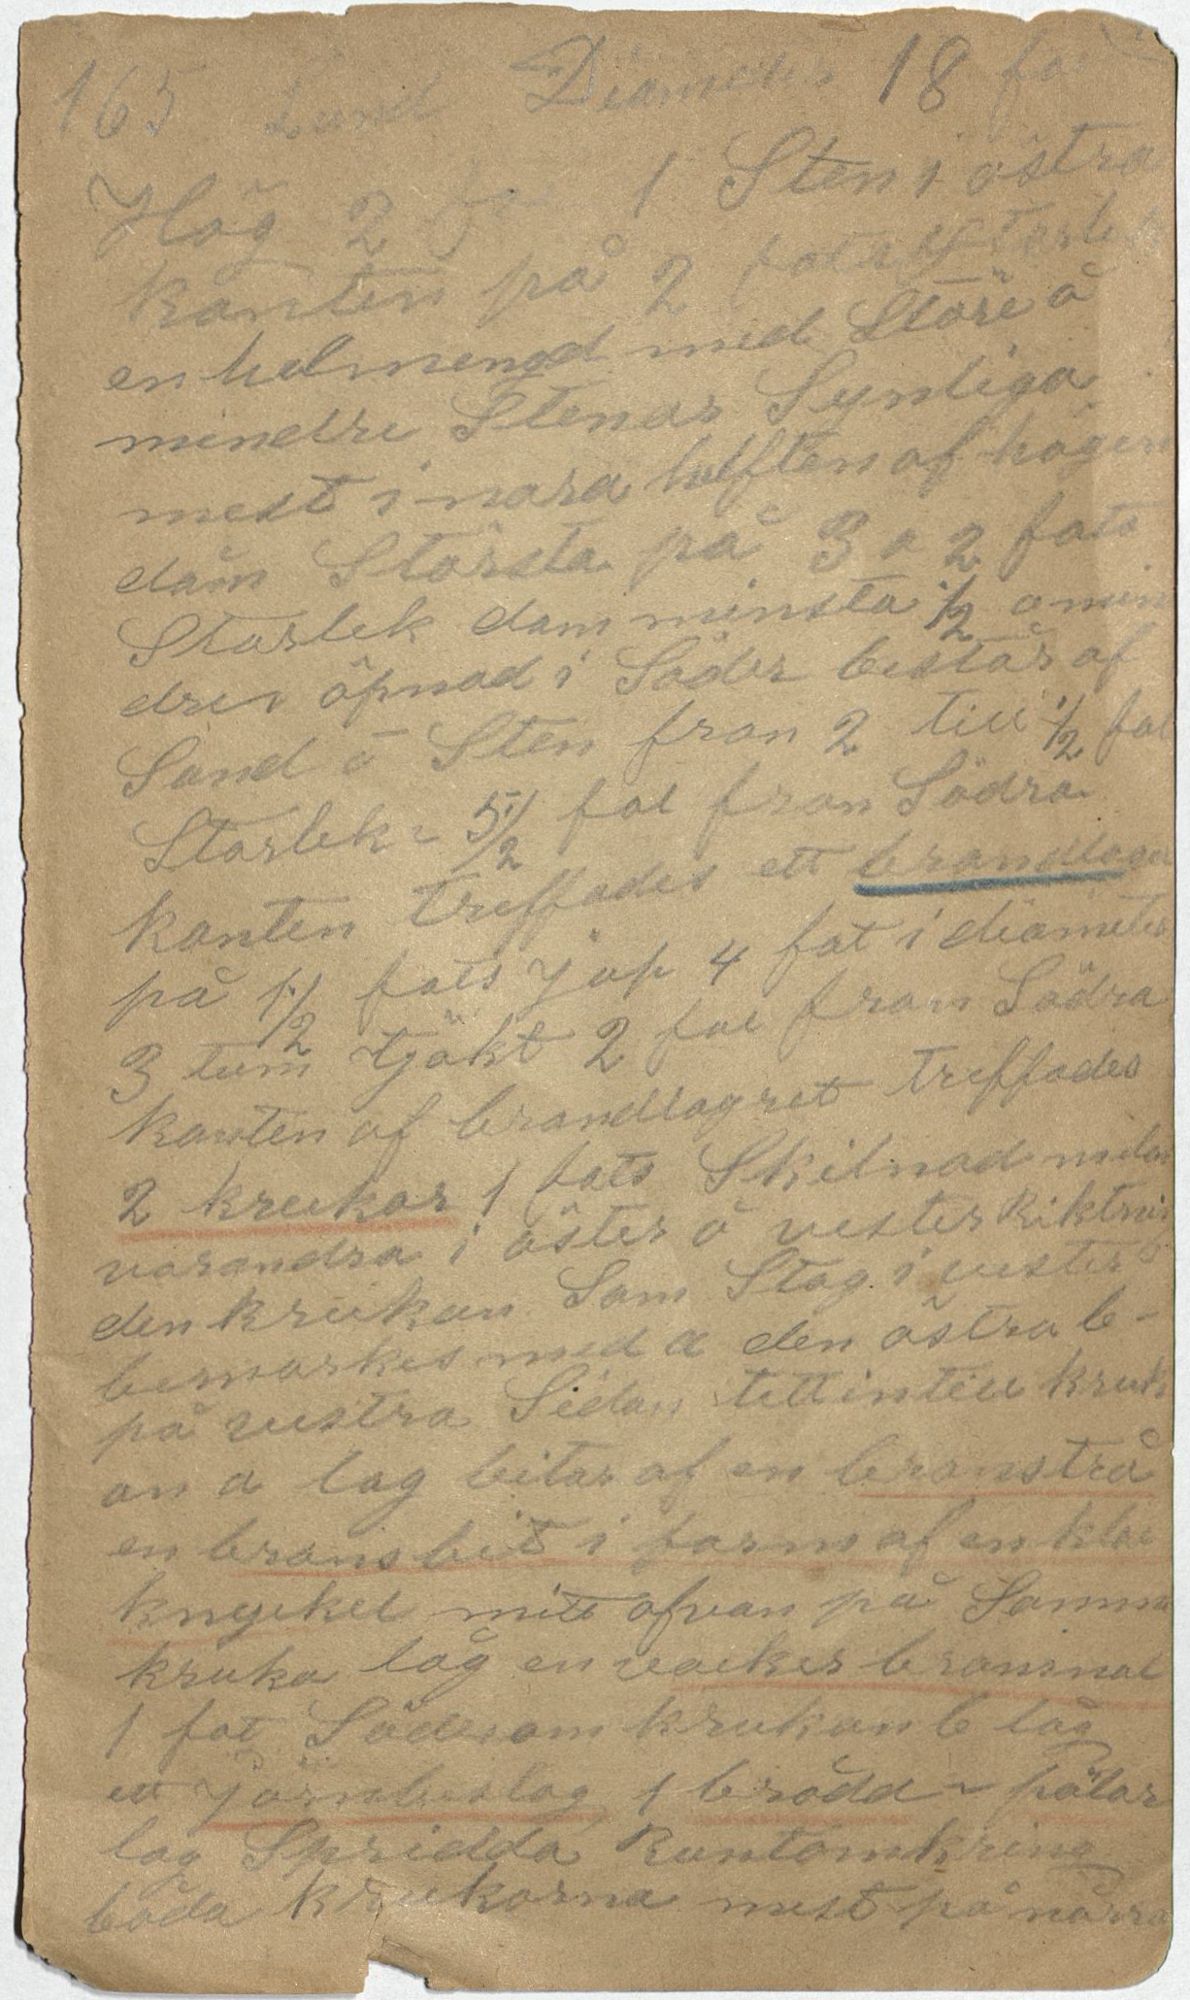 165 Lund Diameter 18 fot
Hög 2 fot 1 Sten i östra
kanten på 2 fots Storlek
en helmengd med Störe å
mindre Stenar Synliga
mest i nora helften af högen
dåm Största på 3 a 2 fots
Storlek dam minsta 1/2 a min
dre öpnad i Söder består af
Sand å Sten fron 2 till 1/2 fot
Storlek ~ 5 1/2 fot fron Södra
kanten treffades ett brandlager
på 1 1/2 fots jup 4 fot i diameter
3 tum tjökt 2 fot fron Södra
kanten af brandlagret treffades
2 krukor 1 fots Skilnad melan
varandra i öster å vester Riktnig
den krukan Som Stog i vester
bemarkes med a den östra b-
på vestra Sidan tett intill kruk
an a lag bitar af en bronstrå
en bronsbit i form af en klav
knyckel mitt ofvan på Samma
kruka låg en vacker bronsnål
1 fot Söder om krukan b låg
ett järnbeslag 1 brådd ~ pålar
lag Spridda Runtomkring
båda krukorna mest på nårra